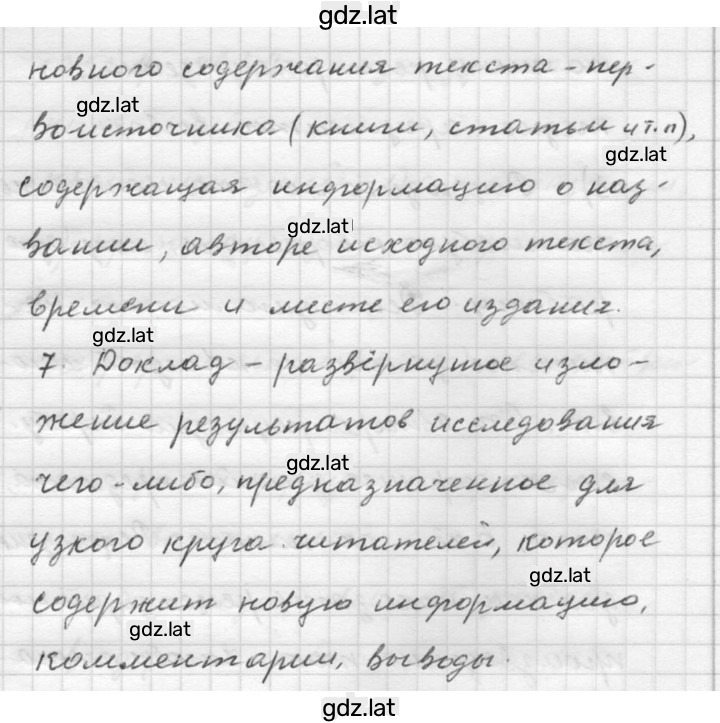 gdz.lat
новного содержания текста-пер-
gdz.lat
воисточника (книги, статьи и т.п),
gdz.lat
содержащая информацию о наз-
gdz.lat
вании, авторе исходного текста,
времени и месте его издания.
gdz.lat
7. Доклад - развёрнутое изло-
жение результатов исследования
gdz.lat
чего-либо, предназначенное для
узкого круга читателей, которое
gdz.lat
содержит новую информацию,
gdz.lat
комментарии, выводы.
gdz.lat